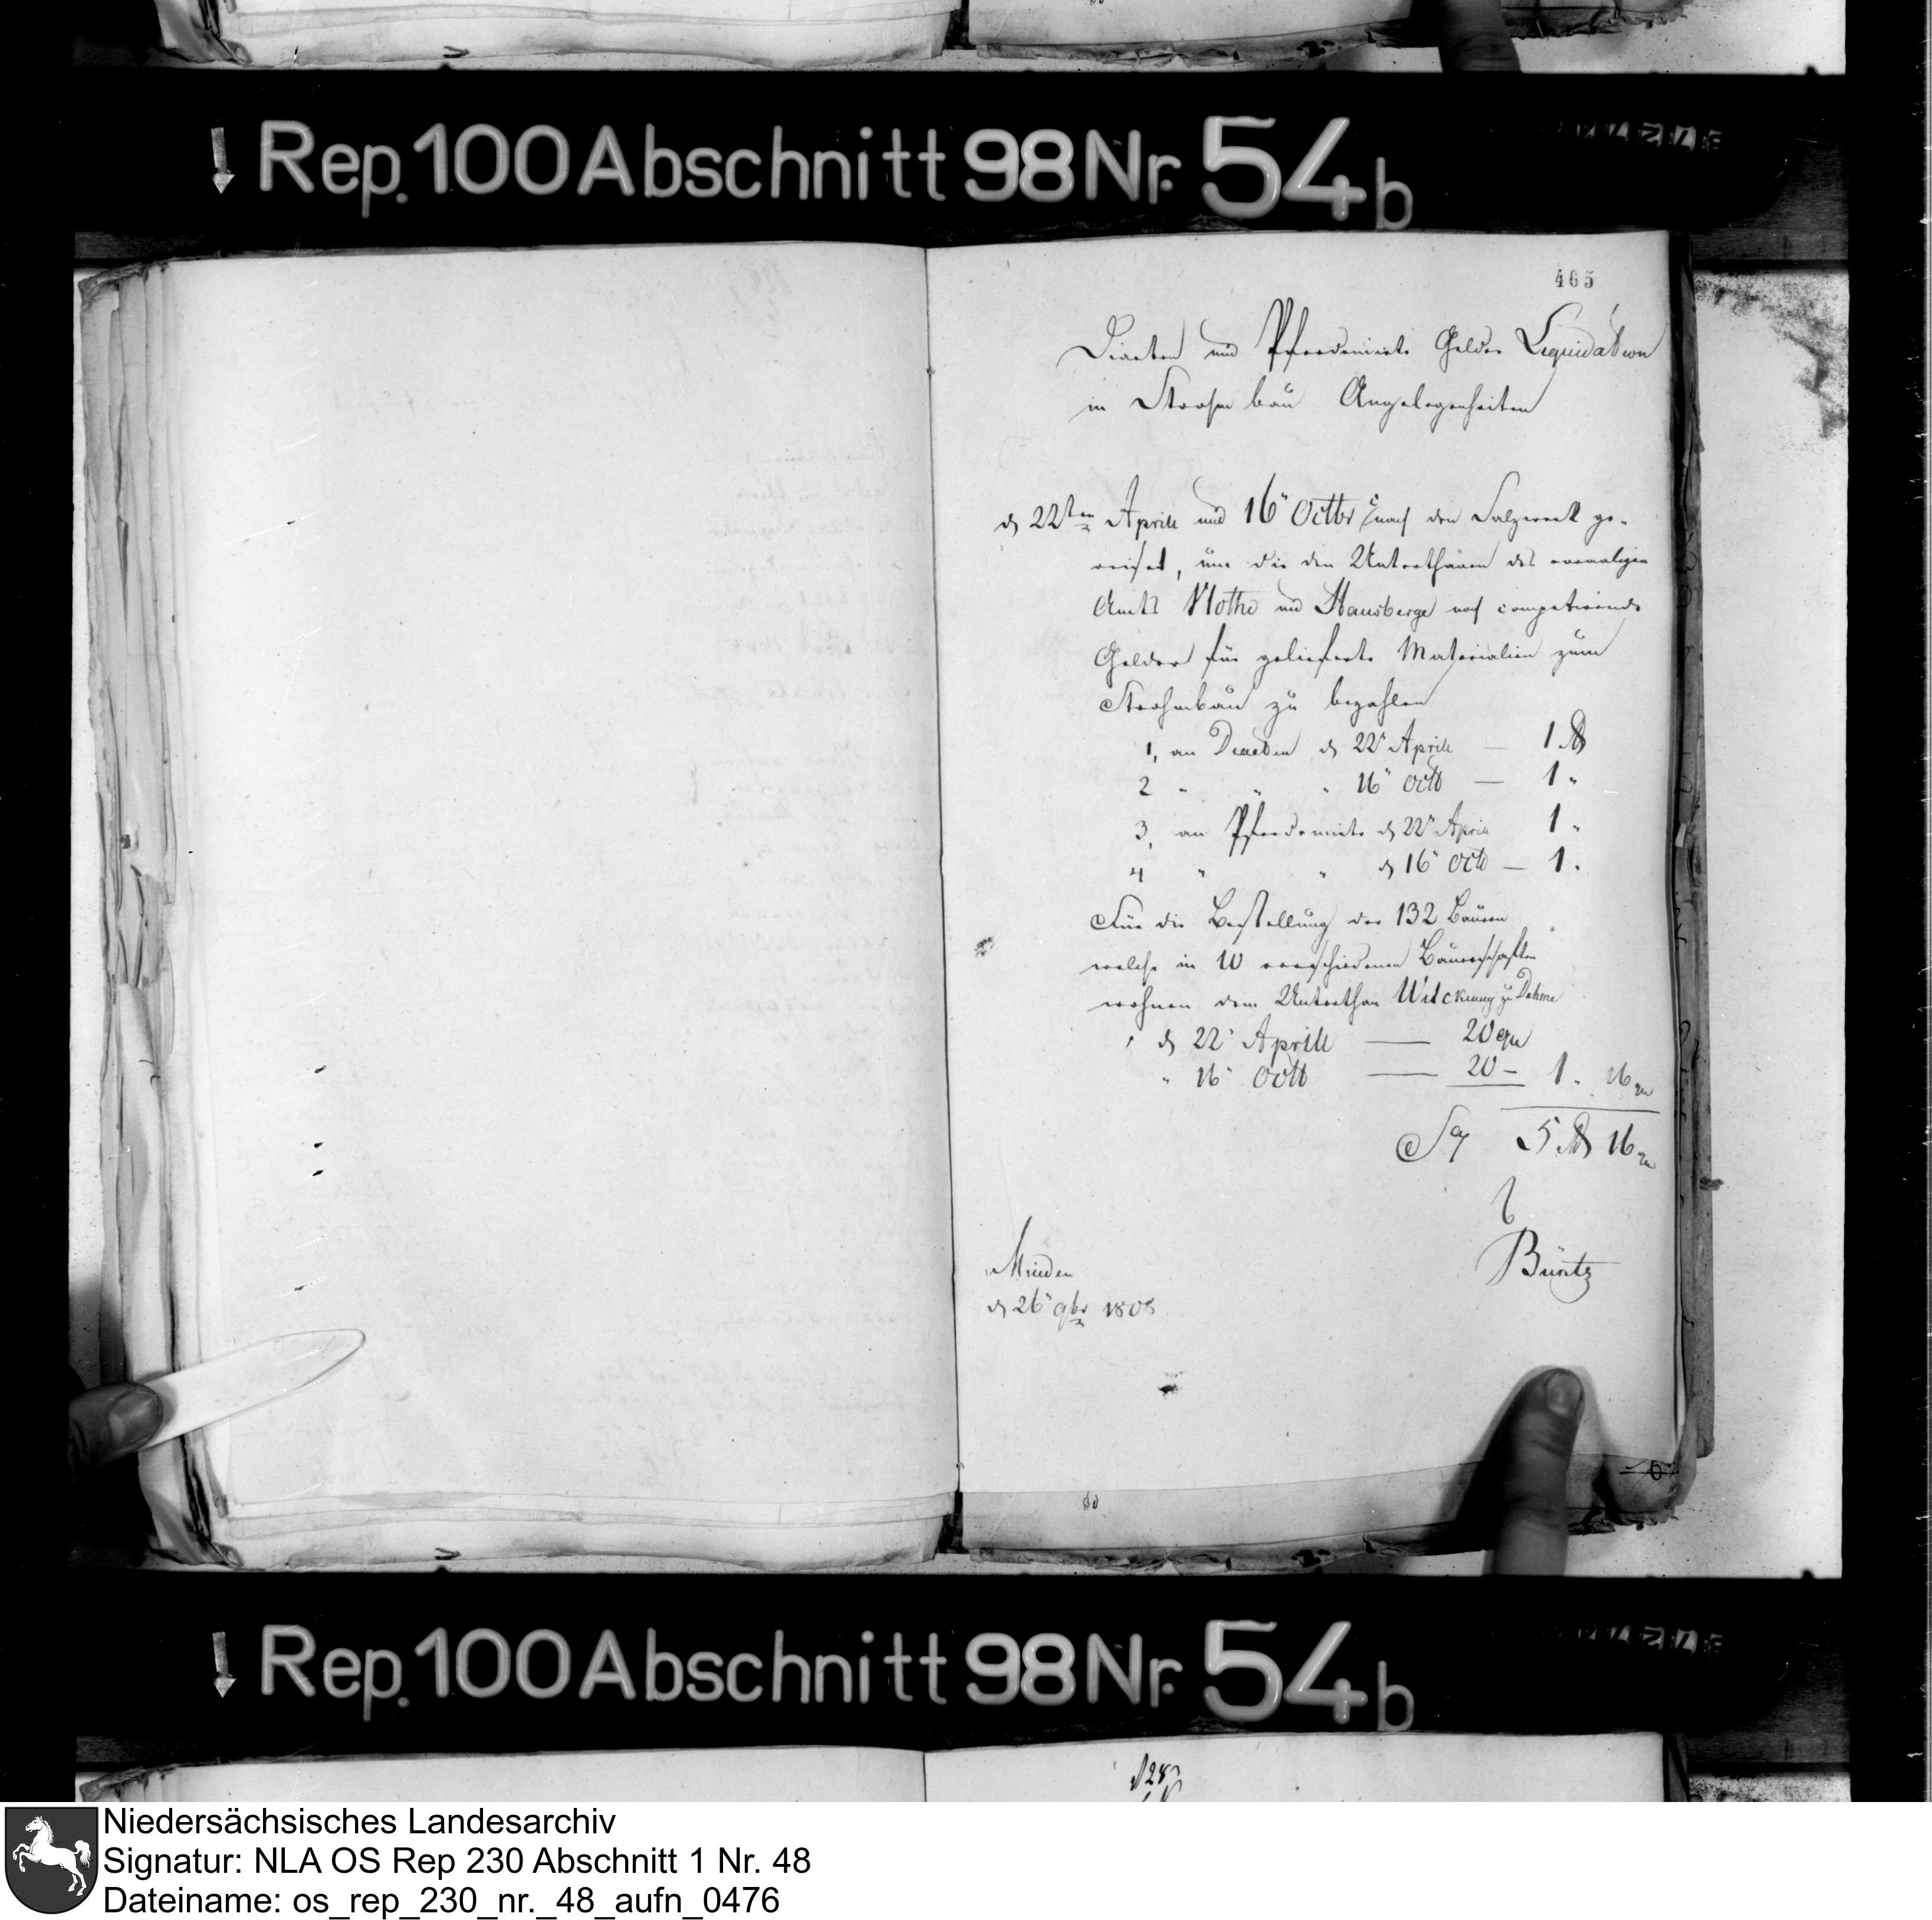 Rep. 100 Abschnitt 98 Nr. 54b
465
Diaeten und Pferdemiethe Gelder Liquidation
in Strohmbau Angelegenheiten
d 22ten Aprill und 16" Octbr nach den Salzwerk ge-
reiset, um die den Unterthanen des vormaligen
Amts Vlotho und Hausberge noch competirende
Gelder für gelieferte Materialien zum
Strohmbau zu bezahlen
1, an Diaeten d 22" Aprill — 1 Rt
2 " " " 16" Octb — 1 "
3, an Pferdemiethe d 22" Aprill 1 "
4 " " d 16" Octb — 1 "
Für die Bestellung der 132 Bauren
welche in 10 verschiedenen Bauerschaften
wohnen dem Unterthan zu Dehme
d 22" Aprill — 20 ggr
" 16" Octb — 20 — 1 " 16 ggr
Sa 5 Rt 16 ggr
Minden
d 26" 9br 1808
Rep. 100 Abschnitt 98 Nr. 54b
Niedersächsisches Landesarchiv
Signatur: NLA OS Rep 230 Abschnitt 1 Nr. 48
Dateiname: os_rep_230_nr._48_aufn_0476